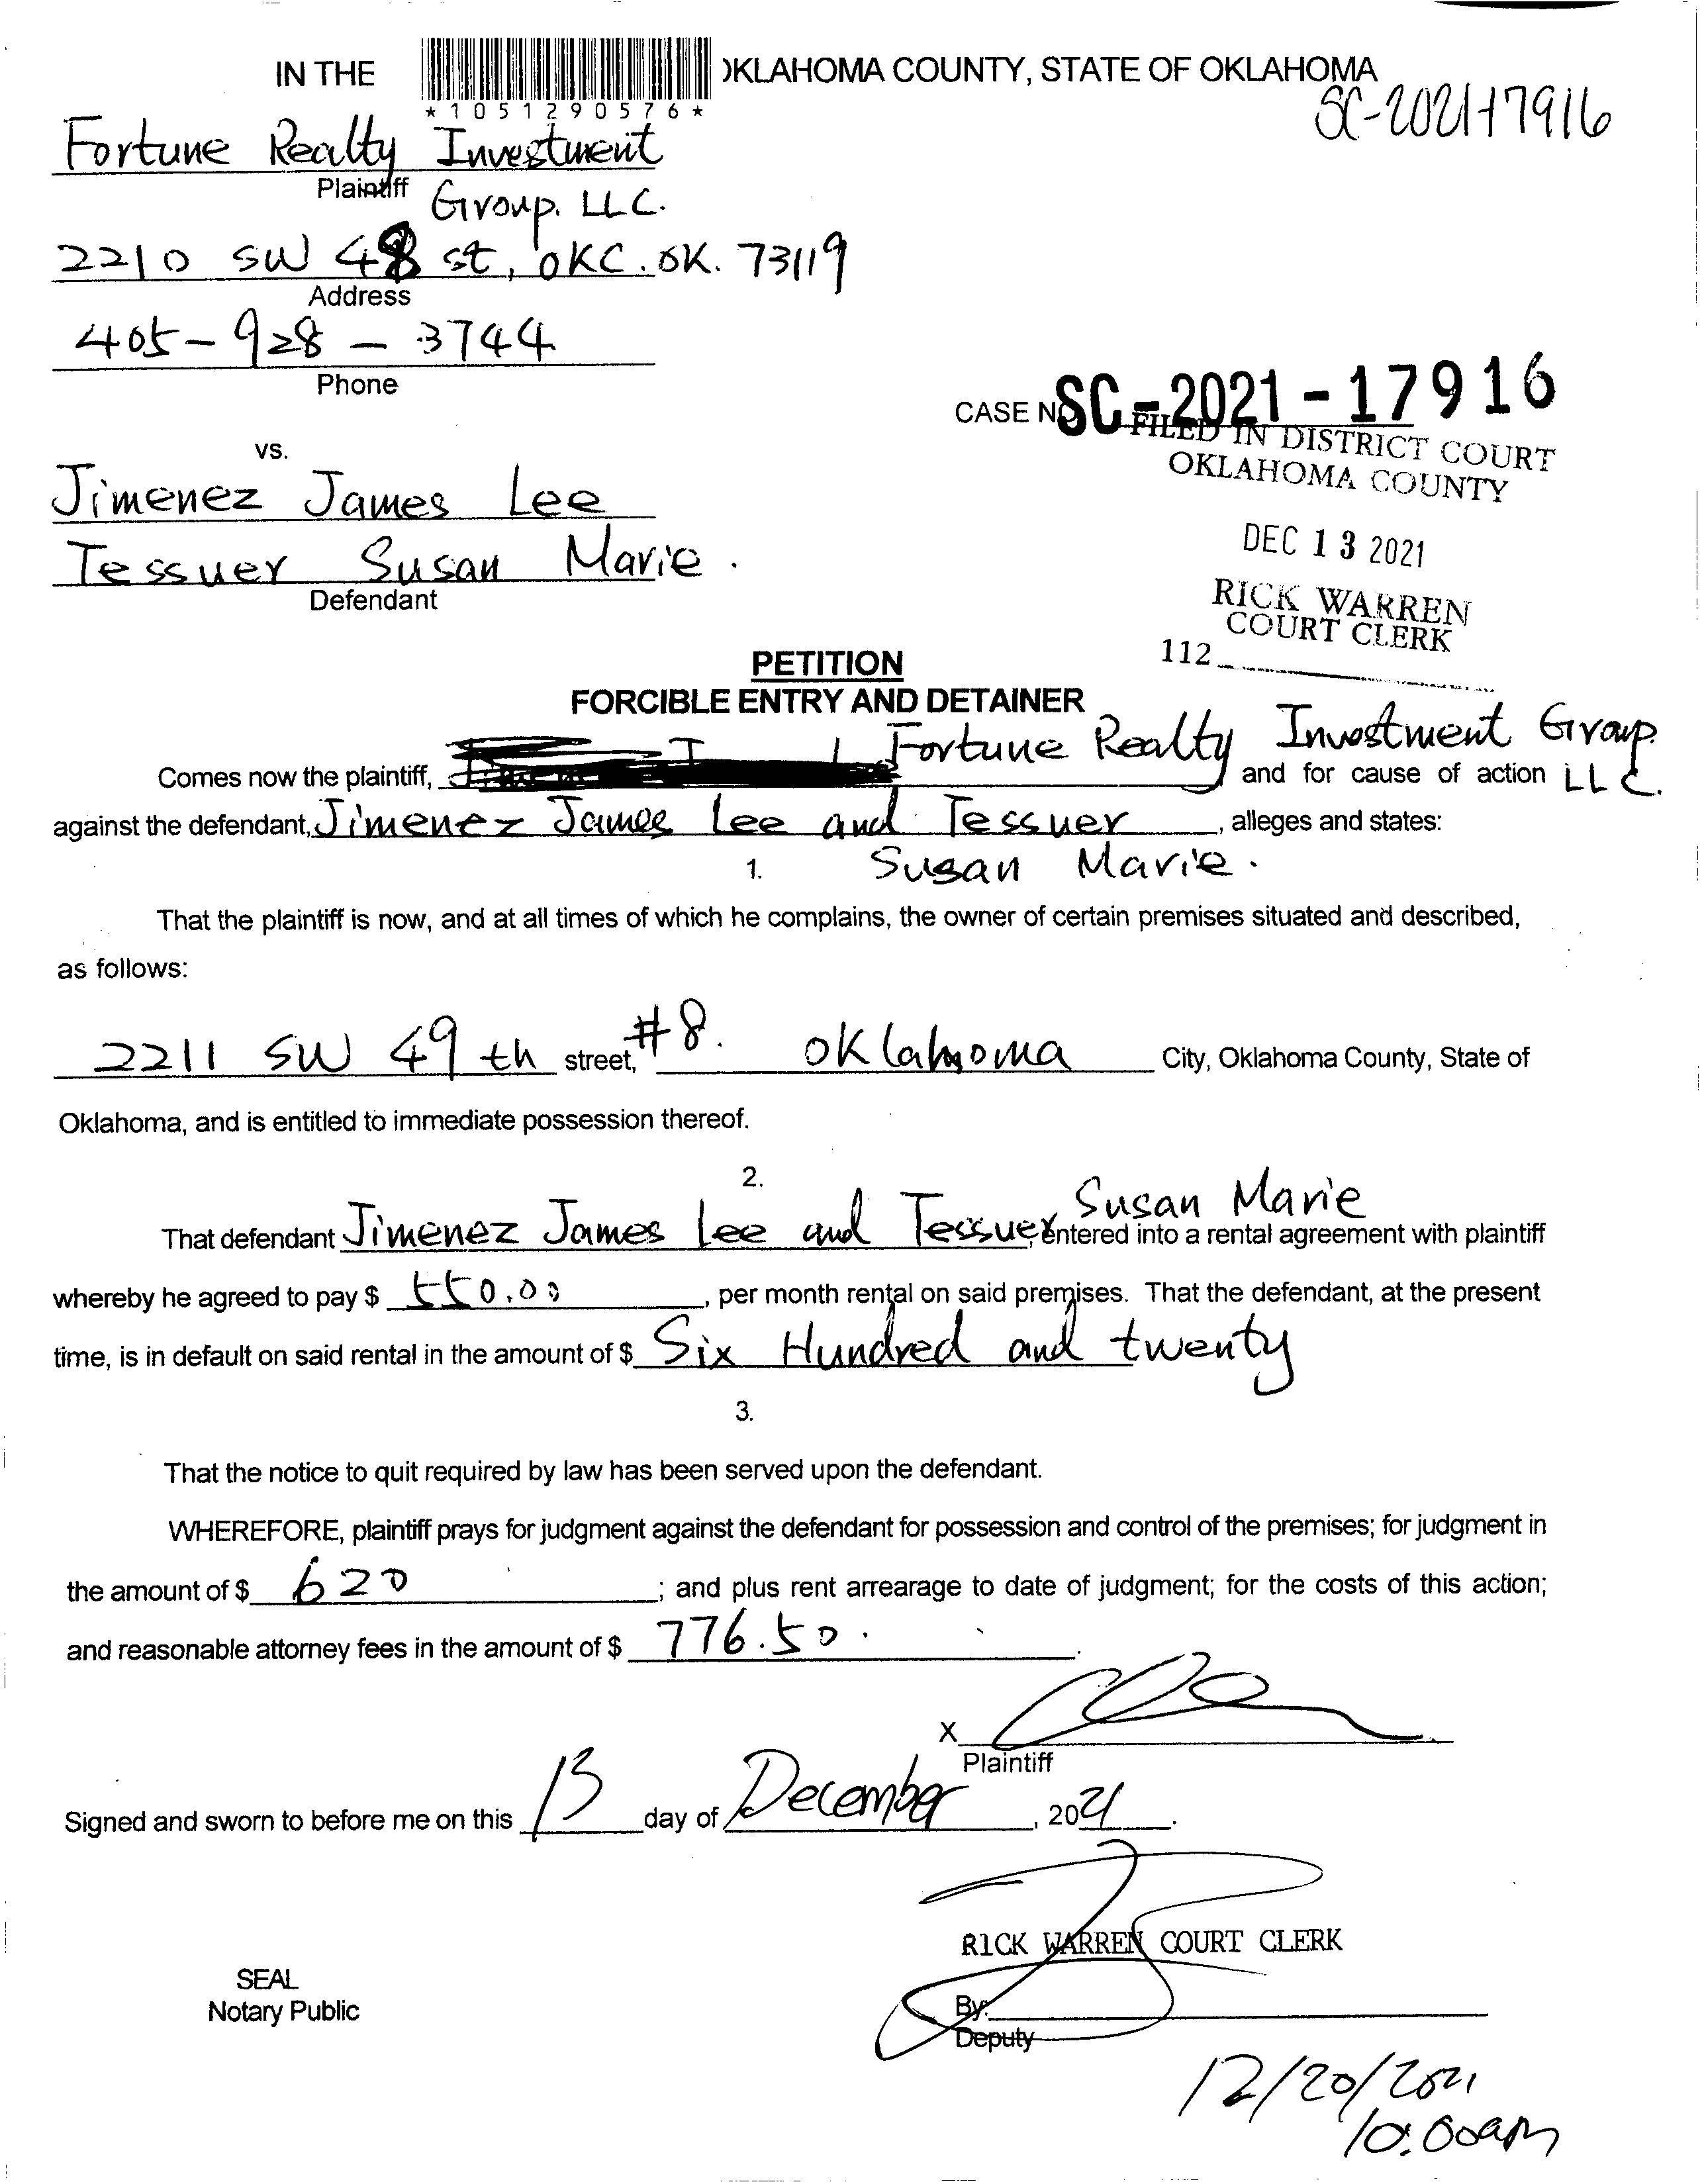 IN THE OKLAHOMA COUNTY, STATE OF OKLAHOMA
*1051290576*
SC-2021-17916
Fortune Realty Investment
Plaintiff Group. LLC.
2210 SW 48 st, OKC. OK. 73119
Address
405-928-3744
Phone
CASE NO SC-2021-17916
FILED IN DISTRICT COURT
OKLAHOMA COUNTY
vs.
Jimenez James Lee
DEC 13 2021
Tessuer Susan Marie.
Defendant
RICK WARREN
COURT CLERK
112
PETITION
FORCIBLE ENTRY AND DETAINER
Comes now the plaintiff, Fortune Realty Investment Group. LLC. and for cause of action
against the defendant, Jimenez James Lee and Tessuer, alleges and states:
1. Susan Marie.
That the plaintiff is now, and at all times of which he complains, the owner of certain premises situated and described,
as follows:
2211 SW 49 th street, #8. Oklahoma City, Oklahoma County, State of
Oklahoma, and is entitled to immediate possession thereof.
2.
That defendant Jimenez James Lee and Tessuer Susan Marie, entered into a rental agreement with plaintiff
whereby he agreed to pay $ 550.00, per month rental on said premises. That the defendant, at the present
time, is in default on said rental in the amount of $ Six Hundred and twenty
3.
That the notice to quit required by law has been served upon the defendant.
WHEREFORE, plaintiff prays for judgment against the defendant for possession and control of the premises; for judgment in
the amount of $ 620; and plus rent arrearage to date of judgment; for the costs of this action;
and reasonable attorney fees in the amount of $ 776.50.
X
Plaintiff
Signed and sworn to before me on this 13 day of December, 2021.
RICK WARREN COURT CLERK
SEAL
Notary Public
By:
Deputy
12/20/2021
10:00am